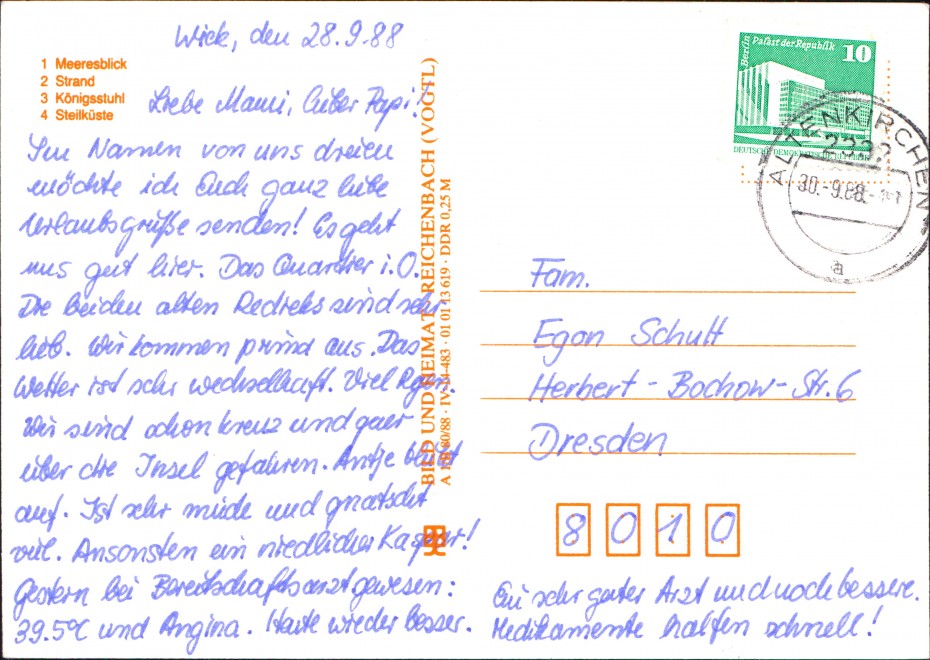 Wiek, den 28.9.88
1 Meeresblick
2 Strand
3 Königsstuhl
4 Steilküste
Liebe Mami, lieber Papi!
Im Namen von uns dreien
möchte ich Euch ganz liebe
Urlaubsgrüße senden! Es geht
uns gut hier. Das Quartier i.O.
Die beiden alten sind sehr
lieb. Wir kommen prima aus. Das
Wetter ist sehr wechselhaft. Viel Regen.
Wir sind schon kreuz und quer
über die Insel gefahren. Antje
auf. Ist sehr müde und gnatscht
viel. Ansonsten ein niedlicher Kasper!
Gestern bei Bereitschaftsarzt gewesen:
39.5°C und Angina. Heute wieder besser.
Ein sehr guter Arzt und noch bessere.
Medikamente halfen schnell!
BILD UND HEIMAT REICHENBACH (VOGTL)
IV-14-483 · 01 01 13 619 · DDR 0,25 M
Berlin Palast der Republik
10
DEUTSCHE DEMOKRATISCHE REPUBLIK
ALTENKIRCHEN
30.-9.88.
a
Fam.
Egon Schult
Herbert-Bochow-Str. 6
Dresden
8010